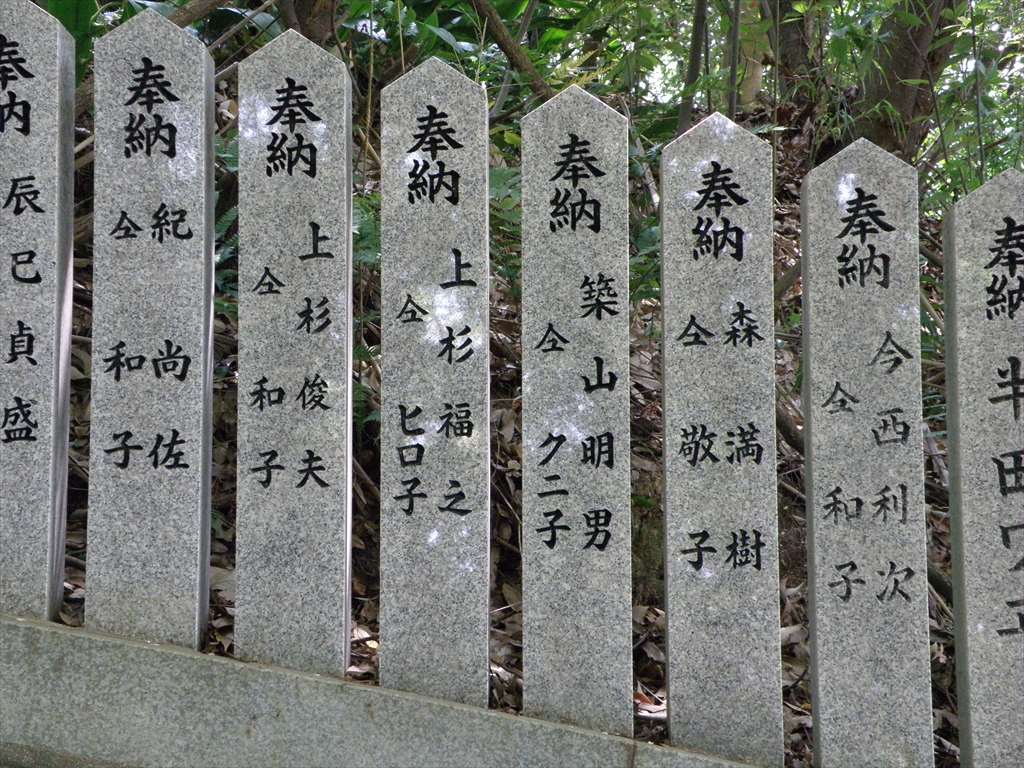 奉納
辰巳貞盛
奉納
紀 尚佐
仝 和子
奉納
上杉俊夫
仝 和子
奉納
上杉福之
仝 ヒロ子
奉納
築山明男
仝 クニ子
奉納
森 満樹
仝 敬子
奉納
今西利次
仝 和子
奉納
半田